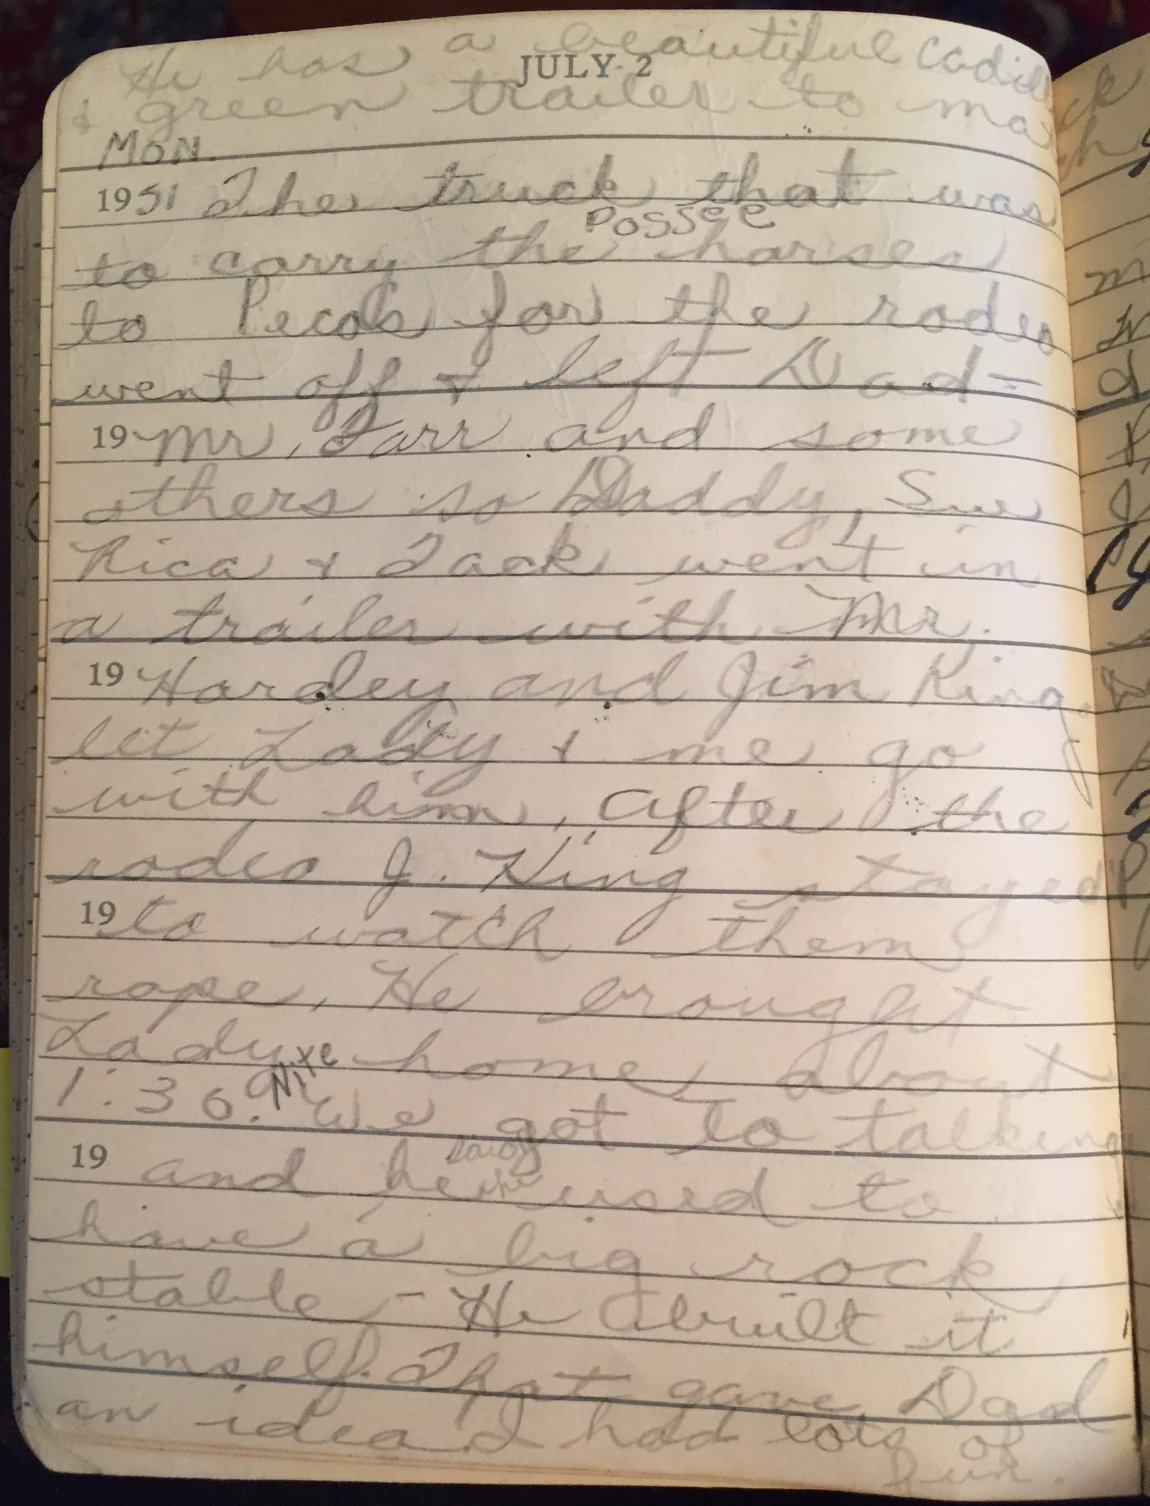 He has a beautiful cadillack
JULY 2
& green trailer to match
MON.
1951 The truck that was
Possee
to carry the horses
to Pecos for the rodeo
went off & left Dad-
19 Mr. Tarr and some
others so Daddy, Sue
Rica & Jack went in
a trailer with Mr.
19 Hardey and Jim King
let Lady & me go
with him, after the
rodeo J. King stayed
19 to watch them
rope, He brought
Lady home about
1:30. Nite We got to talking
19 and he used to
have a big rock
stable - He built it
himself. That gave Dad
an idea I had lots of
fun.